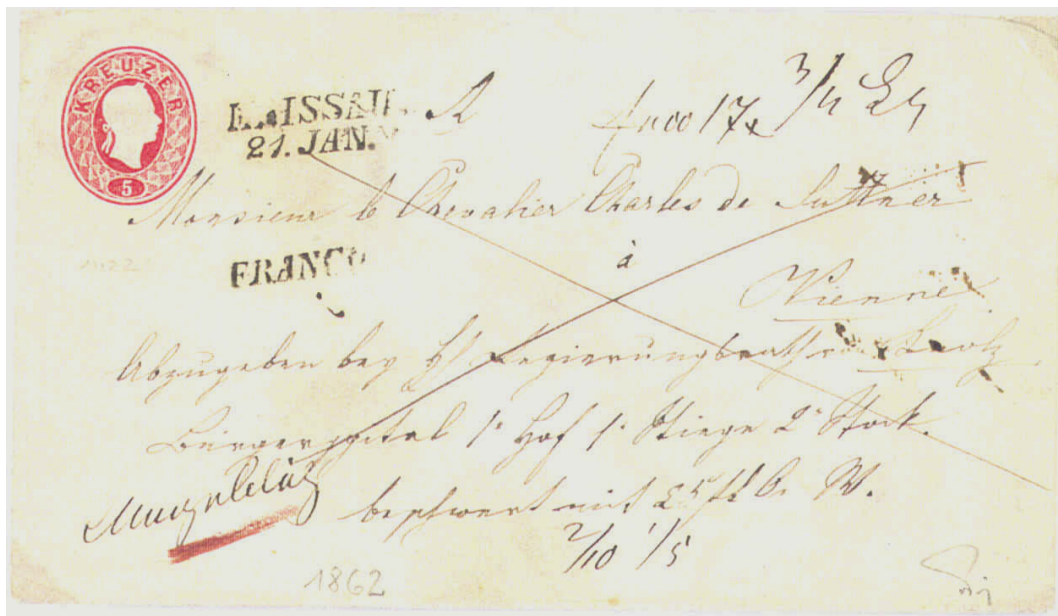 KREUZER
5
MAISSAU
21. JAN.
franco 17x 3/4
Monsieur le Chevalier Charles de Suttner
FRANCO
à
Vienne
Abzugeben bey H Regierungsrath von
Bürgerspital 1r Hof 1e Stiege 2r Stock.
beschwert mit 25 fl Ö. W.
2/10 1/5
1862